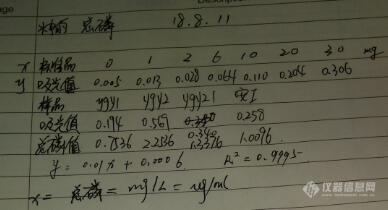 水中的 总磷 18.8.11
x 标准品 0 1 2 6 10 20 30 mg
y 吸光值 0.005 0.013 0.028 0.064 0.110 0.204 0.306
样品 ygy1 ygy2 ygy21
吸光值 0.194 0.569 0.340 0.258
总磷值 0.7536 2.2536 1.3376 1.0096
y = 0.01x + 0.0006 R² = 0.9995
x = 总磷 = mg/L = ug/ml
仪器信息网